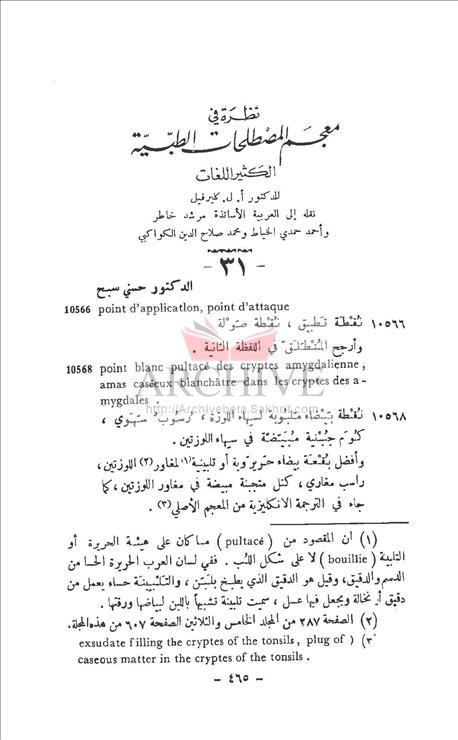 نظرة في
معجم المصطلحات الطبيّة
الكثير اللغات
للدكتور أ. ل. كليرفيل
نقله إلى العربية الأساتذة مرشد خاطر
وأحمد حمدي الخياط ومحمد صلاح الدين الكواكبي
- ٣١ -
الدكتور حسني سبح
10566 point d'application, point d'attaque
١٠٥٦٦ نقطة تطبيق ، نقطة صولة
وأرجح المنطلق في اللفظة الثانية .
10568 point blanc pultacé des cryptes amygdalienne,
amas caséeux blanchâtre dans les cryptes des a-
mygdales .
ARCHIVE
http://Archivebeta.Sakhrit.com
١٠٥٦٨ نقطة بيضاء ملبوبة لسهاء اللوزة ، رسوب سهوي ،
كثوم جبنية مبيضة في سهاء اللوزتين .
وأفضل بقعة بيضاء حريروبة أو تلبينية (١) لمغاور (٢) اللوزتين ،
راسب مغاري ، كتل متجبنة مبيضة في مغاور اللوزتين ، كما
جاء في الترجمة الانكليزية من المعجم الأصلي (٣) .
(١) ان المقصود من ( pultacé ) ما كان على هيئة الحريرة أو
التلبينة ( bouillie ) لا على شكل اللب . ففي لسان العرب الحريرة الحسا من
الدسم والدقيق، وقيل هو الدقيق الذي يطبخ بلبن ، والتلبينة حساء يعمل من
دقيق أو نخالة ويجعل فيها عسل ، سميت تلبينة تشبيهاً باللبن لبياضها ورقتها .
(٢) الصفحة ٢٨٧ من المجلد الخامس والثلاثين الصفحة ٦٠٧ من هذه المجلة.
(٣ ( exsudate filling the cryptes of the tonsils, plug of
caseous matter in the cryptes of the tonsils .
- ٤٦٥ -